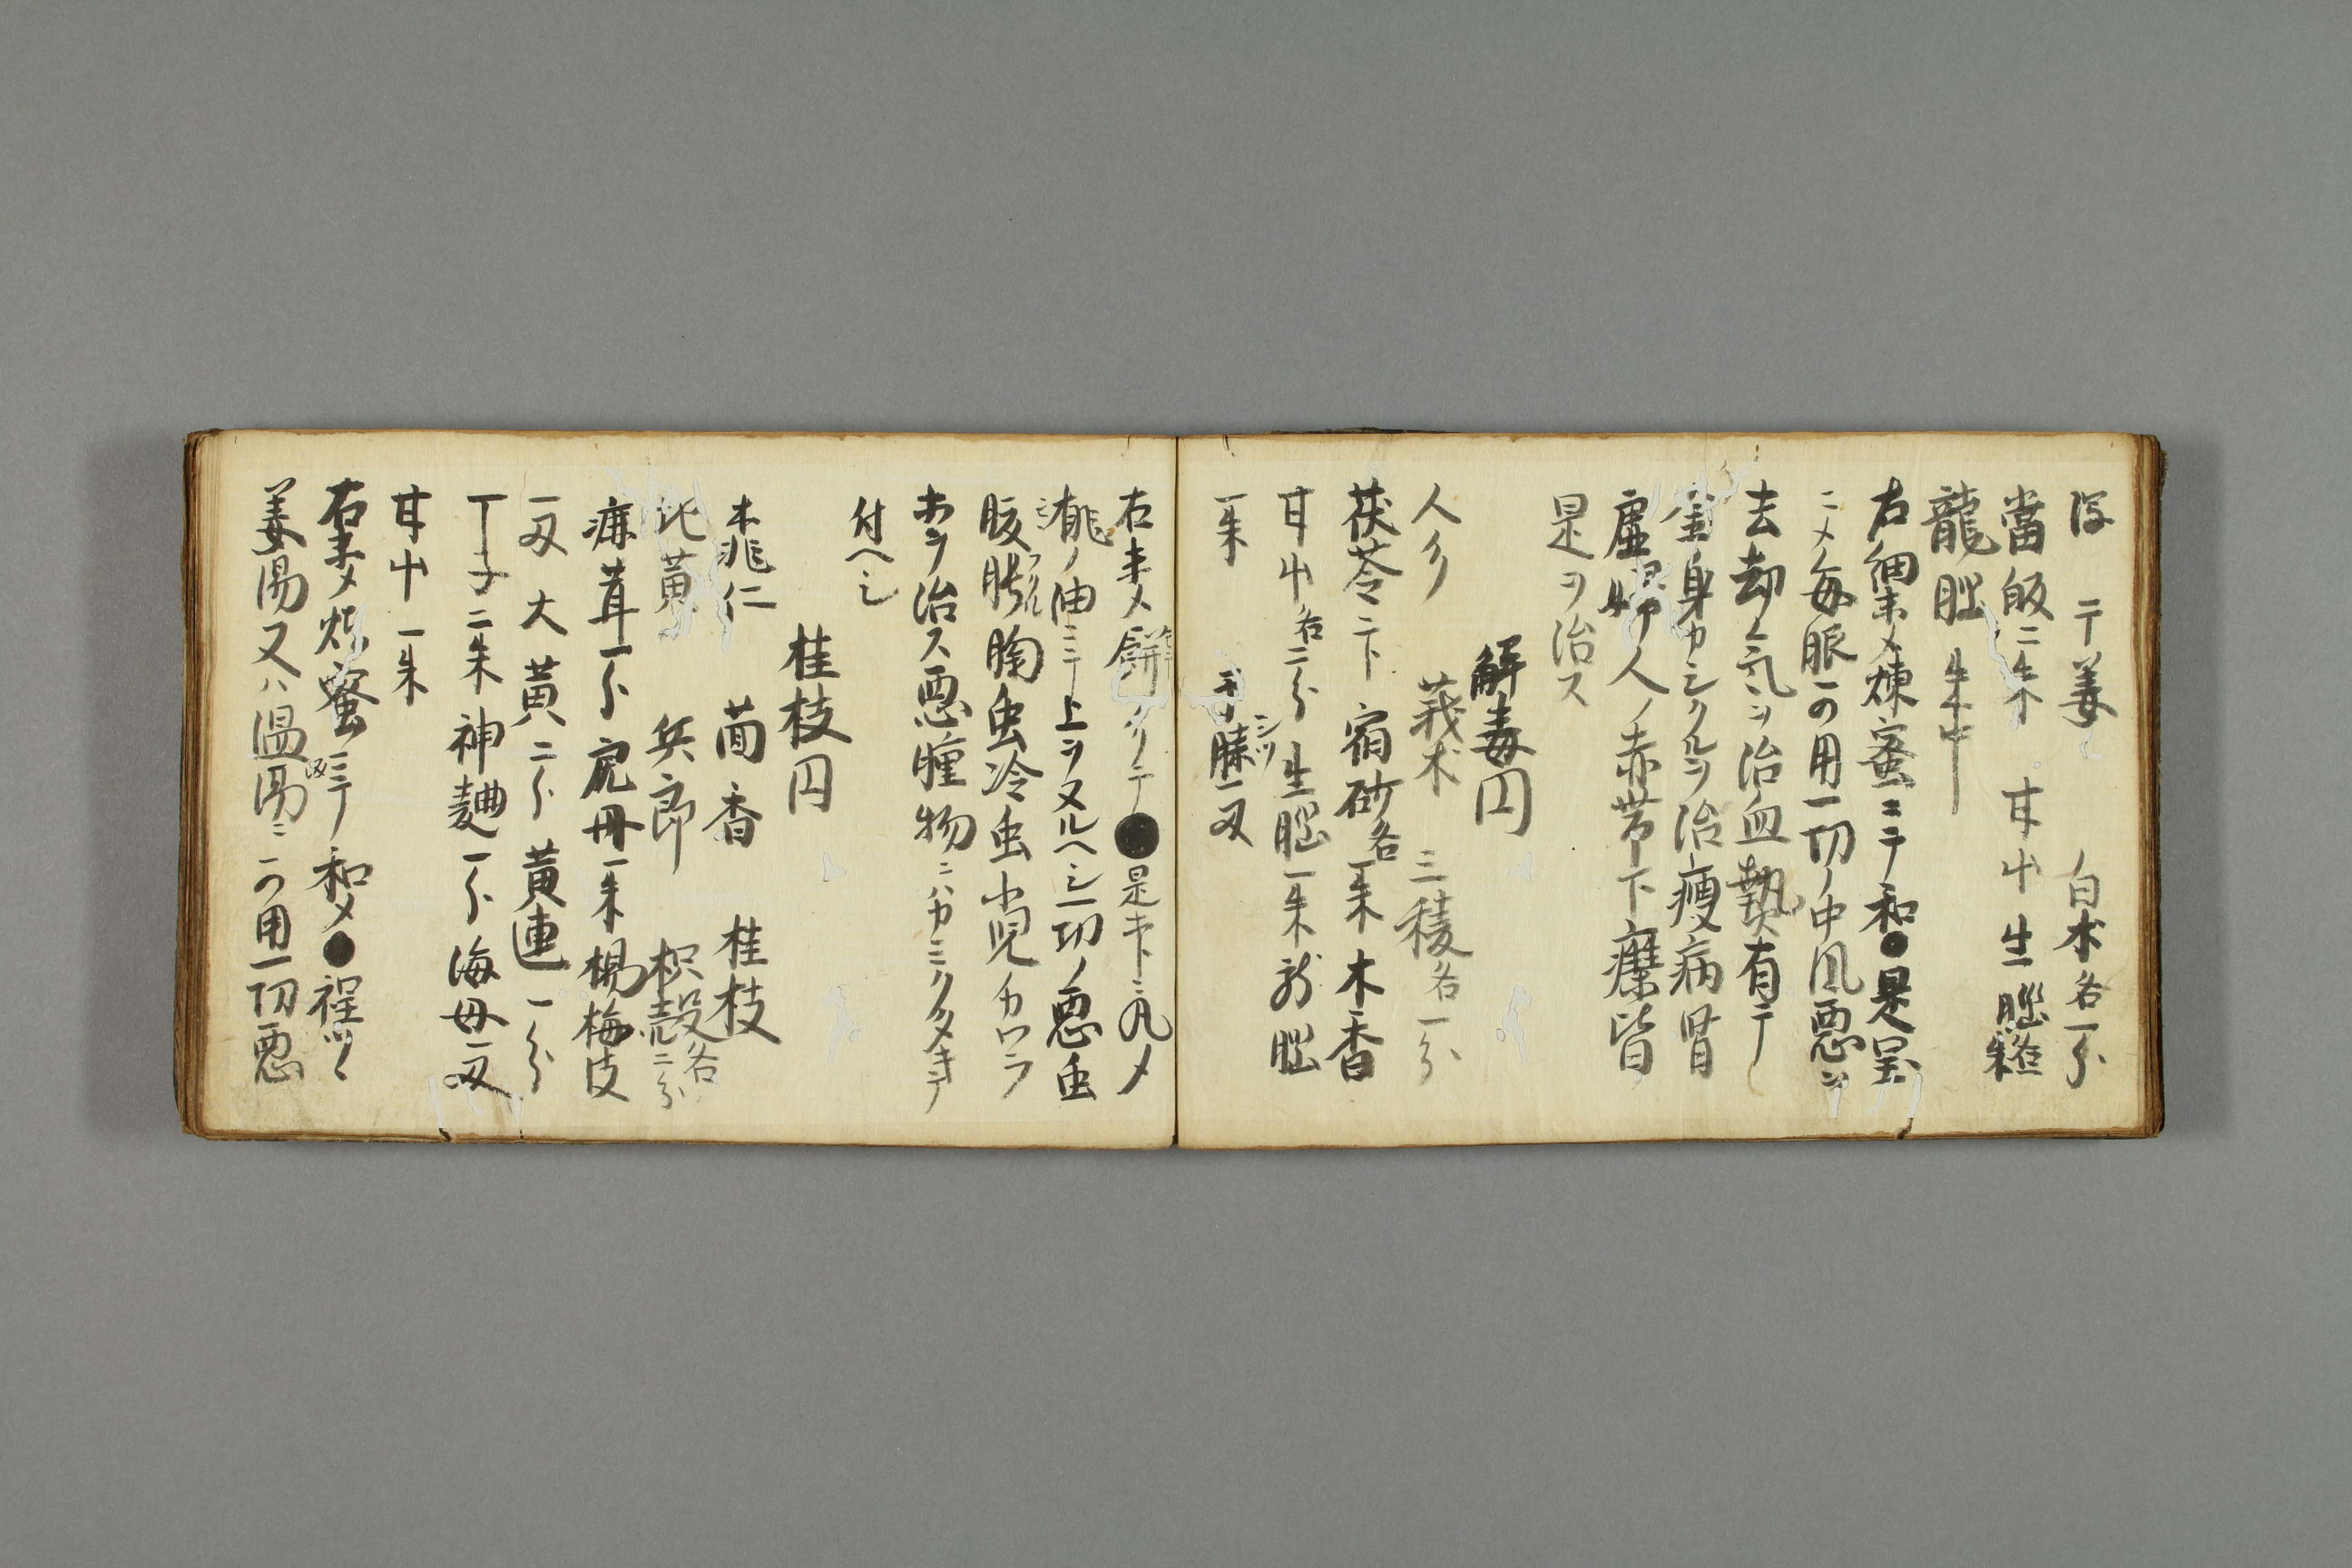 干姜 白朮各一分
當皈二朱 甘中 生脳二朱
龍脳朱中
右細末〆煉蜜ニテ和●是呈
ニ〆毎服一可用一切ノ中風悪ヲ
去却气ヲ治血熱有テ
金身カシクルヲ治瘦病胃
虚婦人ノ赤帯下癪皆
是ヲ治ス
解毒円
人多 莪朮 三稜各一分
茯苓二下 宿砂各一朱木香
甘中各二分 生脳一朱龍脳
一朱 膝一又
右末〆餅ツクリテ●是ホトニ丸〆
ノ油ニテ上ヲヌルヘシ一切ノ悪虫
胸虫冷虫小児
ヲ治ス悪腫物ニハカミクタキテ
付ヘシ
桂枝円
木兆仁 茴香 桂枝
黄 兵郎 枳殻各二分
茸一分 一朱楊梅皮
一又大黄二分 黄連一分
丁子二朱神麯一分海母一又
甘中一朱
右末〆煉蜜ニテ和〆●程ツヽ
姜湯又ハ温湯ニ可用一切悪